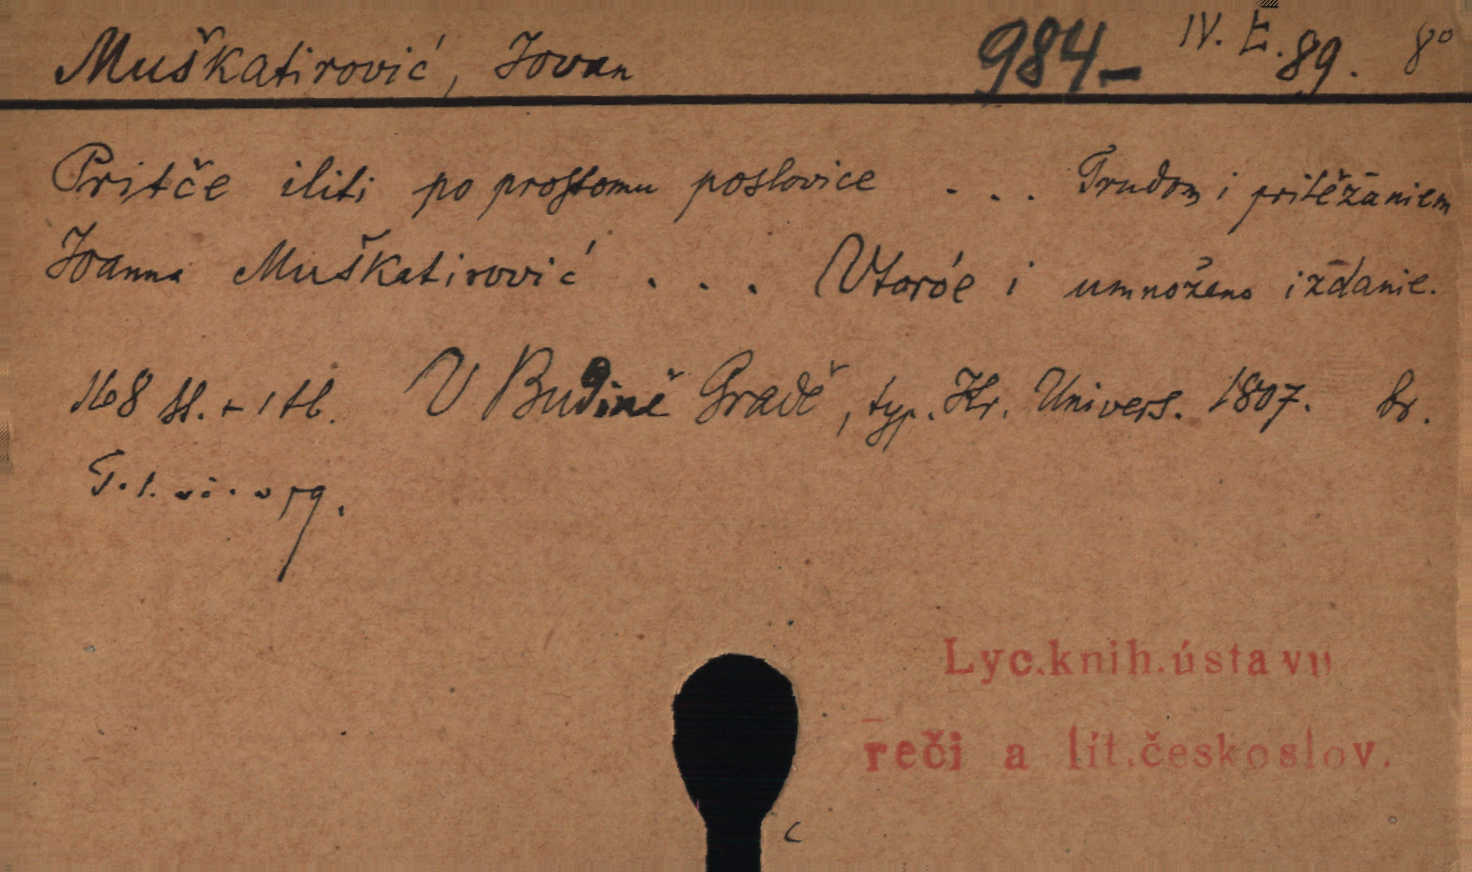 Muškatirović, Jovan 984- IV. E. 89. 8°
Pritče iliti po prostomu poslovice ... Trudom i pritěžaniem
Joanna Muškatirović ... Vtoróe i umnoženo izdanie.
168 st. + 1 tb. V Budině Gradě, typ. Kr. Univers. 1807. br.
Lyc.knih.ústavu
reči a lit.českoslov.